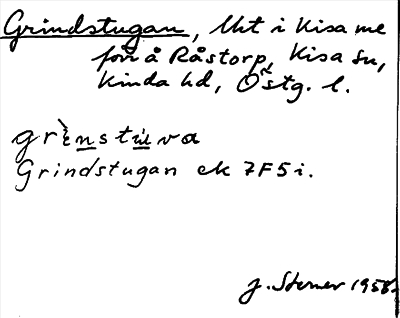 Grindstugan, Uht i Kisa me
förs å Råstorp, Kisa sn,
Kinda hd, Östg. l.
grìnstùva
Grindstugan ek 7F5i.
J. Sterner 1958.